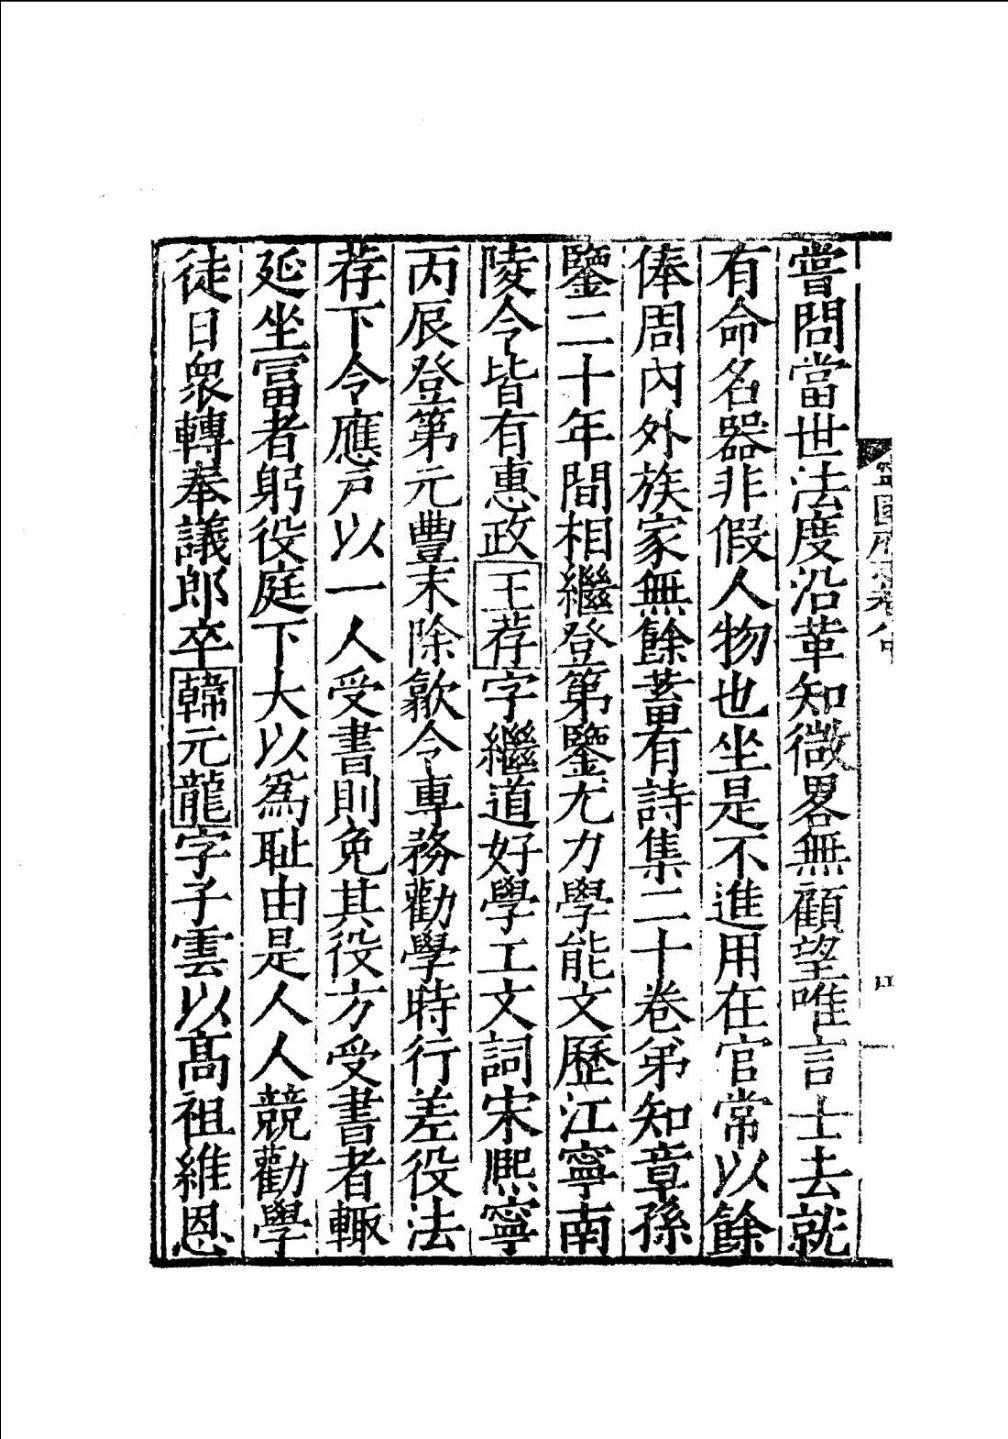 寧國府志卷八中
四
嘗問當世法度沿革知微畧無顧望唯言士去就
有命名器非假人物也坐是不進用在官常以餘
俸周內外族家無餘蓄有詩集二十卷弟知章孫
鑒二十年間相繼登第鑒尤力學能文歷江寧南
陵令皆有惠政王荐字繼道好學工文詞宋熈寧
丙辰登第元豐末除歙令專務勸學時行差役法
荐下令應戸以一人受書則免其役方受書者輙
延坐冨者躬役庭下大以爲耻由是人人競勸學
徒日衆轉奉議郎卒韓元龍字子雲以髙祖維恩